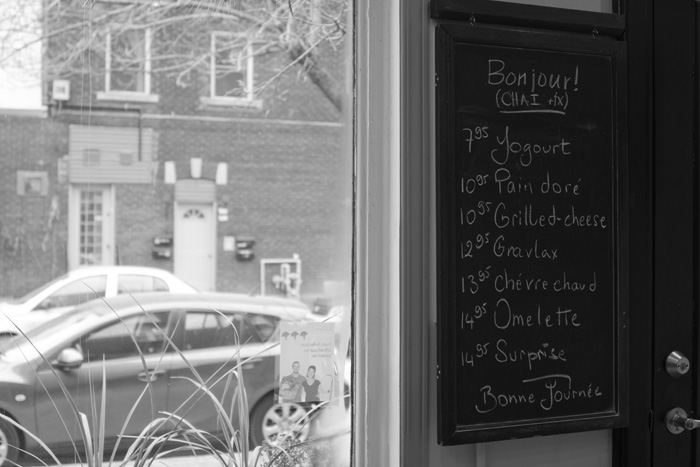 Bonjour!
(CHAI +tx)
7⁹⁵ Yogourt
10⁹⁵ Pain doré
10⁹⁵ Grilled-cheese
12⁹⁵ Gravlax
13⁹⁵ chévre chaud
14⁹⁵ Omelette
14⁹⁵ Surprise
Bonne Journée